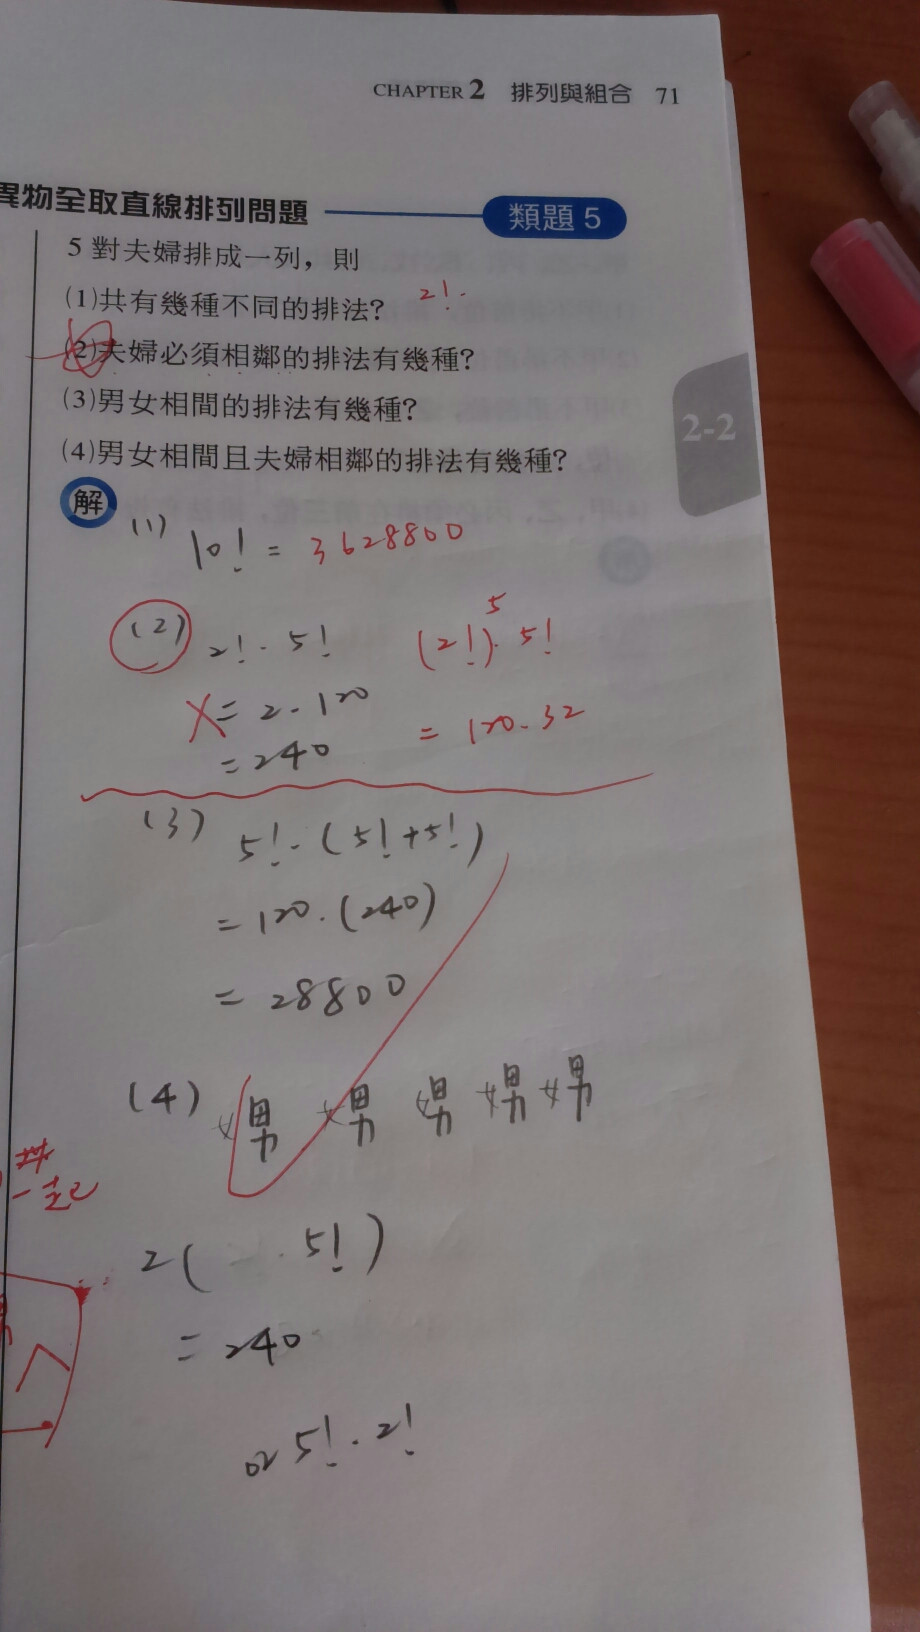 CHAPTER 2 排列與組合 71
異物全取直線排列問題 類題 5
5 對夫婦排成一列，則
(1)共有幾種不同的排法? 2!·
(2)夫婦必須相鄰的排法有幾種?
(3)男女相間的排法有幾種?
(4)男女相間且夫婦相鄰的排法有幾種?
2-2
解
(1) 10! = 3628800
(2) 2! · 5! (2!)⁵ · 5!
= 2 · 120 = 120 · 32
= 240
(3) 5! · (5! + 5!)
= 120 · (240)
= 28800
(4) 女男 女男 女男 女男 女男
一起
2( · 5!)
= 240
or 5! · 2!